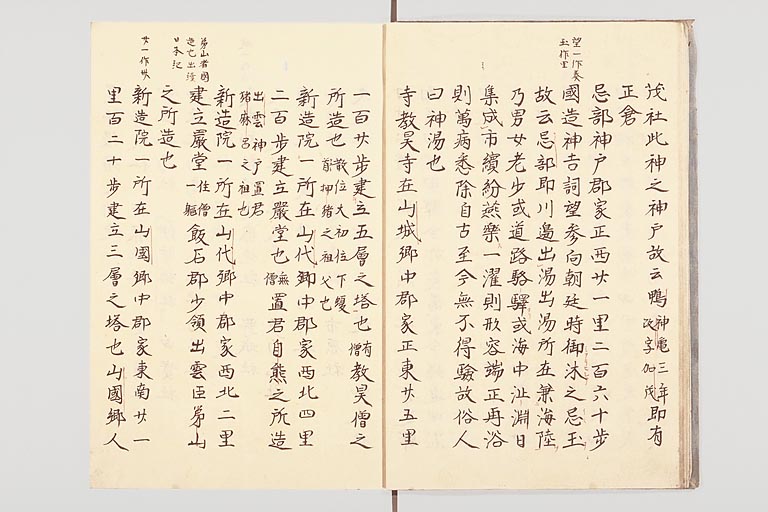 望一作奏
玉作里
茂社此神之神戸故云鴨神亀三年改字加茂即有
正倉
忌部神戸郡家正西廿一里二百六十歩
國造神吉詞望参向朝廷時御沐之忌玉
故云忌部即川邊出湯出湯所在兼海陸
乃男女老少或道路駱驛或海中沚淵日
集成市繽紛燕樂一濯則形容端正再浴
則萬病悉除自古至今無不得驗故俗人
曰神湯也
寺教昊寺在山城郷中郡家正東廿五里
一百廿歩建立五層之塔也有僧教昊僧之
所造也散位大初位下復首押猪之祖父也
新造院一所在山代郷中郡家西北四里
二百歩建立嚴堂也無僧置君自熊之所造
出雲神戸置君猪麻呂之祖也
新造院一所在山代郷中郡家西北二里
建立嚴堂住僧一軀飯石郡少領出雲臣弟山
之所造也
新造院一所在山國郷中郡家東南廿一
里百二十歩建立三層之塔也山國郷人
弟山者國
造也出續
日本紀
廿一作卅